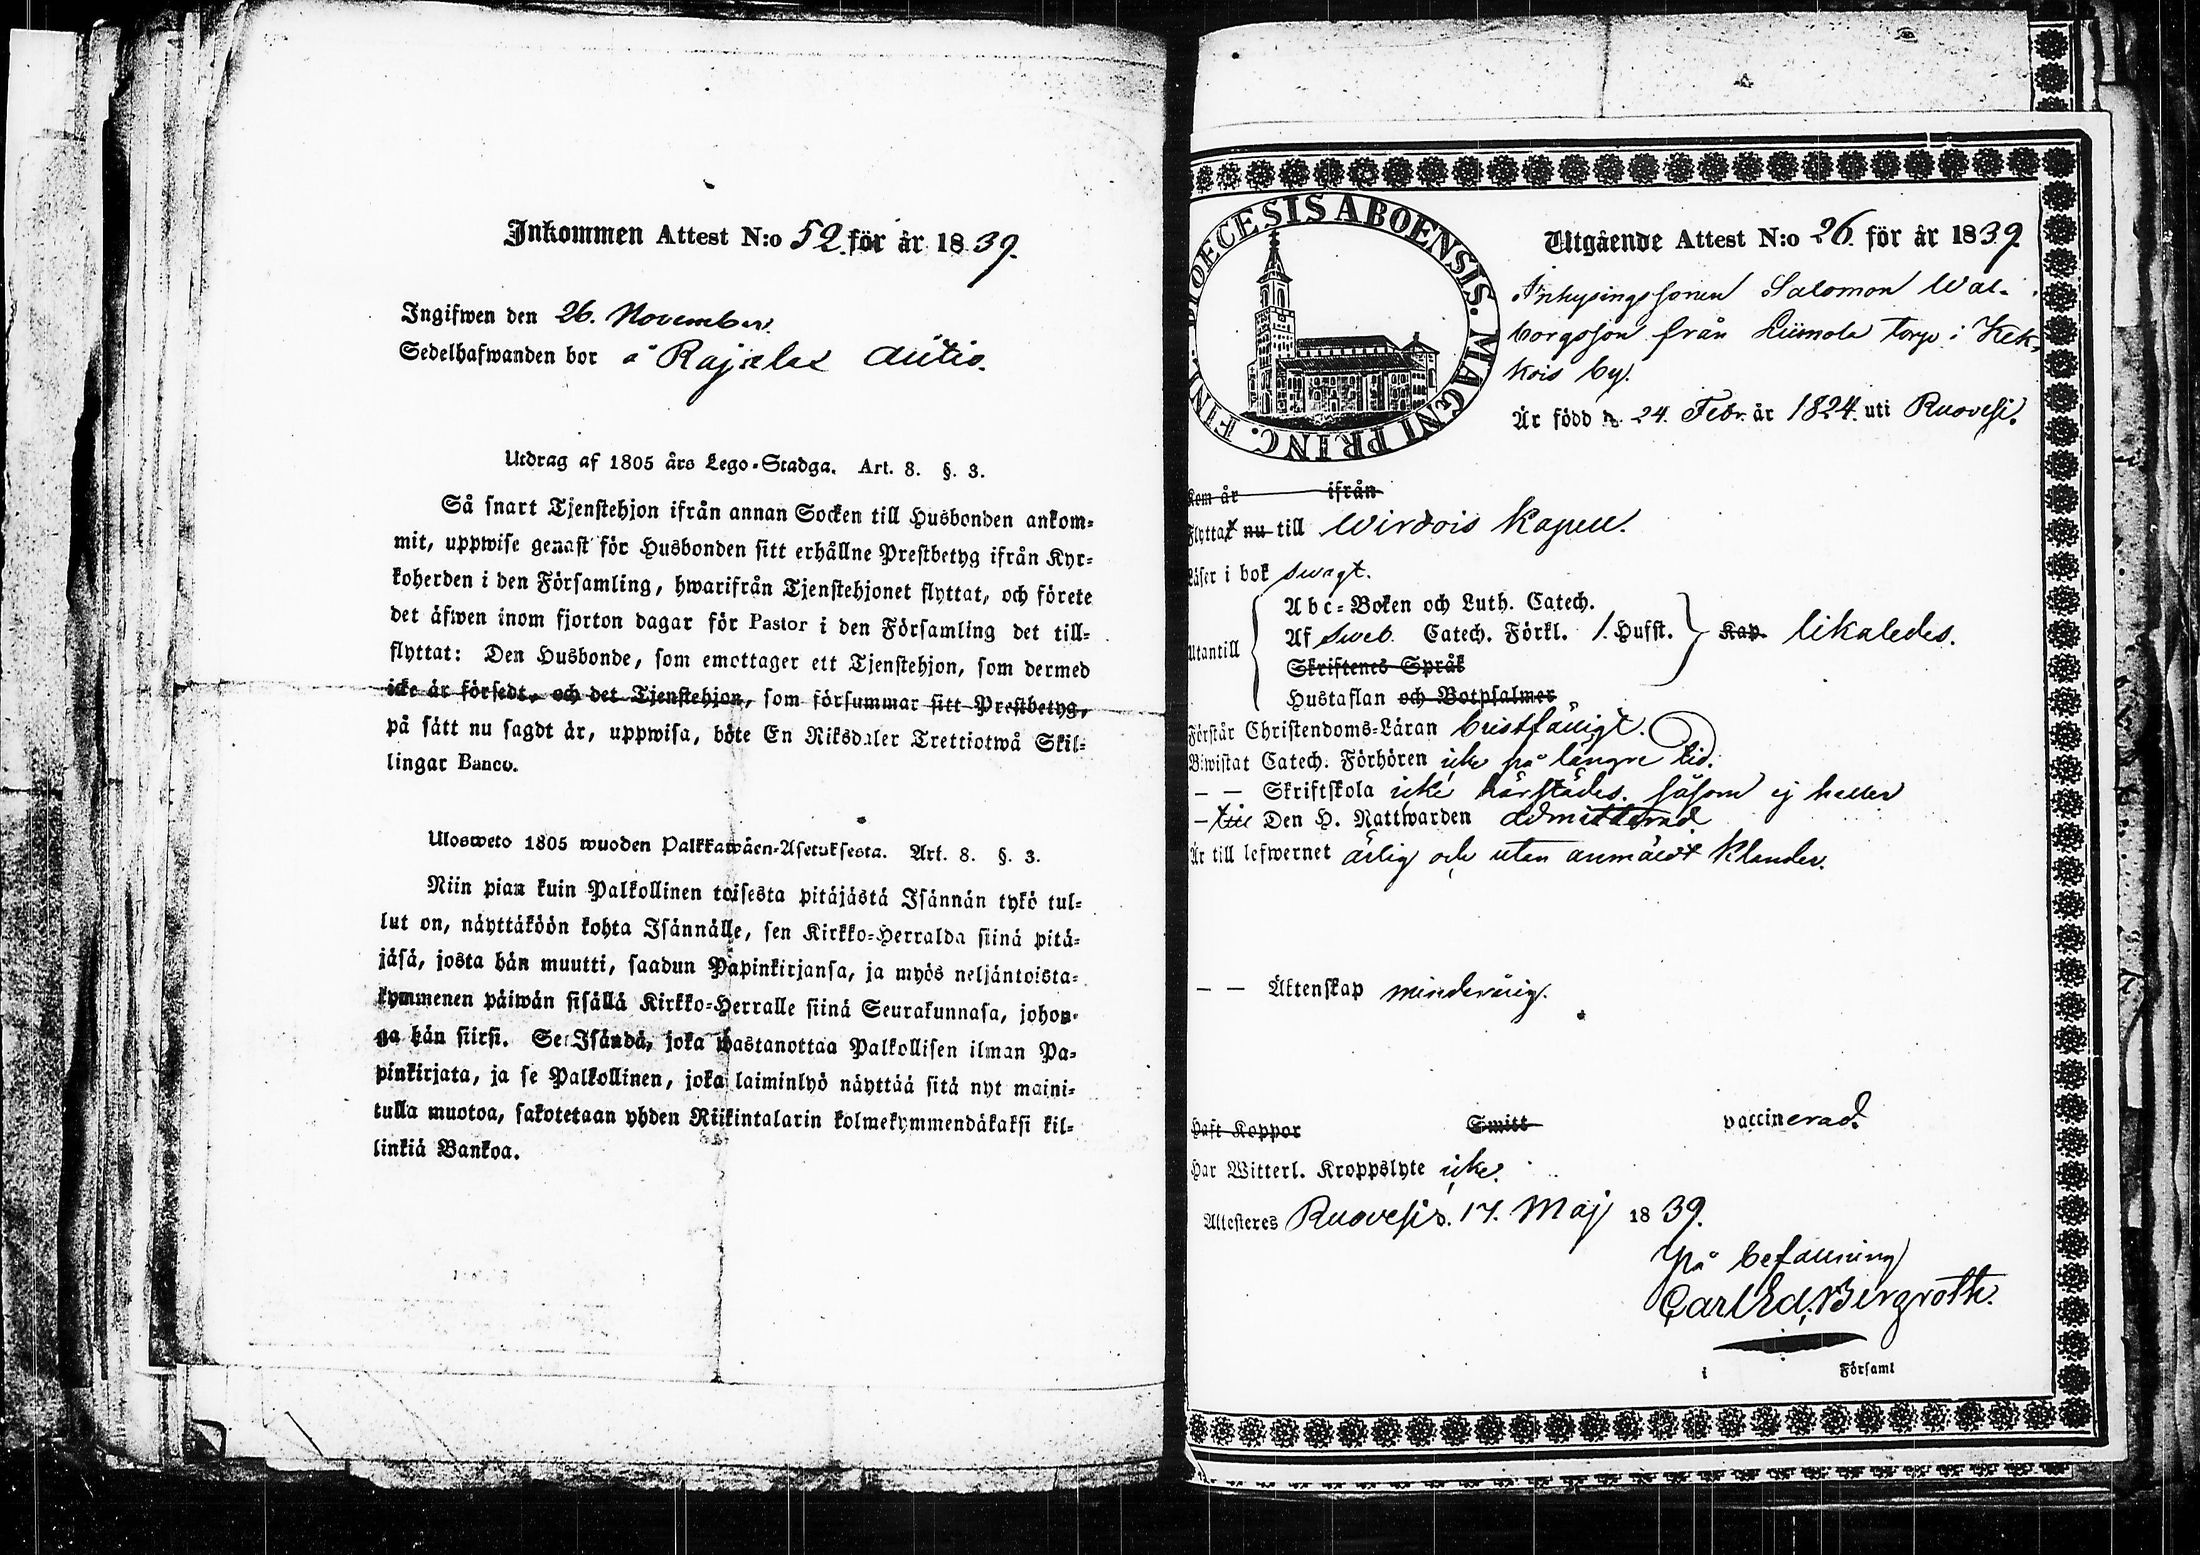 Inkommen Attest N:o 52. för år 1839.
Ingifwen den 26. November.
Sedelhafwanden bor å Rajalax Autio.
Utdrag af 1805 års Lego-Stadga. Art. 8. §. 3.
Så snart Tjenstehjon ifrån annan Socken till Husbonden ankom-
mit, uppwise genast för Husbonden sitt erhållne Prestbetyg ifrån Kyr-
koherden i den Församling, hwarifrån Tjenstehjonet flyttat, och förete
det äfwen inom fjorton dagar för Pastor i den Församling det till-
flyttat: Den Husbonde, som emottager ett Tjenstehjon, som dermed
icke är försedt, och det Tjenstehjon, som försummar sitt Prestbetyg,
på sätt nu sagdt är, uppwisa, böte En Riksdaler Trettiotwå Skil-
lingar Banco.
Ulosweto 1805 wuoden Palkkawäen-Asetuksesta. Art. 8. §. 3.
Niin pian kuin Palkollinen toisesta pitäjästä Isännän tykö tul-
lut on, näyttäköön kohta Isännälle, sen Kirkko-Herralda siinä pitä-
jäsä, josta hän muutti, saadun Papinkirjansa, ja myös neljäntoista-
kymmenen päiwän sisällä Kirkko-Herralle siinä Seurakunnasa, johon-
ga hän siirsi. Se Isändä, joka wastanottaa Palkollisen ilman Pa-
pinkirjata, ja se Palkollinen, joka laiminlyö näyttää sitä nyt maini-
tulla muotoa, sakotetaan yhden Riikintalarin kolmekymmendäkaksi kil-
linkiä Bankoa.
DIOECESIS ABOENSIS. MAGNI PRINC. FINL.
Utgående Attest N:o 26. för år 1839.
Inhysingssonen Salomon Wal-
borgsson från Liimola torp i Kek-
kois by.
Är född d. 24. Febr. år 1824. uti Ruovesi.
Kom år ifrån
Flyttat nu till Wirdois Kapell.
Läser i bok swagt.
Abc-Boken och Luth. Catech.
Utantill Af Sweb. Catech. Förkl. 1. Hufst. Kap. likaledes.
Skriftenes Språk
Hustaflan och Botpsalmer
Förstår Christendoms-Läran bristfälligt.
Biwistat Catech. Förhören icke på längre tid.
— — Skriftskola icke härstädes. såsom ej heller
— till Den H. Nattwarden admitterad.
Är till lefwernet ärlig och utan anmäldt klander.
— — Äktenskap minderårig.
Haft Koppor Smitt vaccinerad.
Har Witterl. Kroppslyte icke.
Attesteres Ruovesi d. 17. Maj 1839.
På befallning
Carl Ed. Bergroth.
i Församl